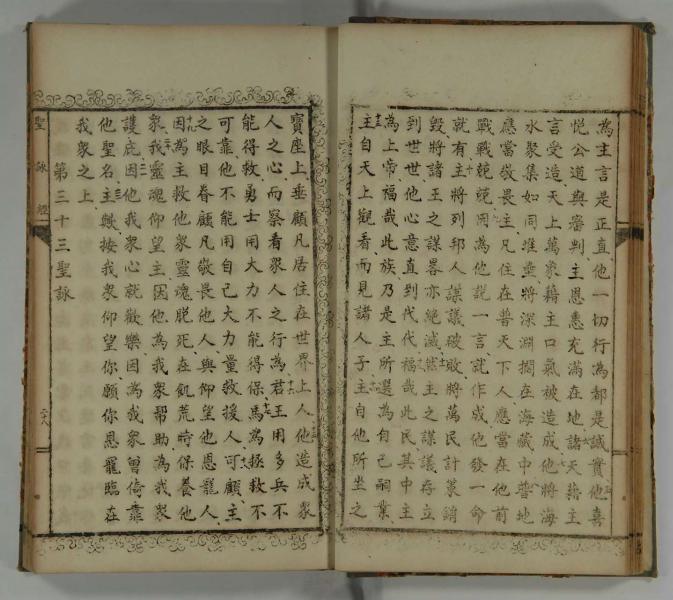 為主言是正直他一切行為都是誠實他喜
悅公道與審判主恩惠充滿在地諸天藉主
言受造天上萬象藉主口氣被造成他將海
水聚集如同堆壘將深淵擱在海藏中普地
應當敬畏主凡住在普天下人應當在他前
戰戰兢兢因為他說一言就作成他發一命
就有主將列邦人謀議破敗將萬民計策銷
毀將諸王之謀畧亦絕滅惟主之謀議存立
到世世他心意直到代代福哉此民其中主
為上帝福哉此族乃是主所選為自己嗣業
主自天上觀看而見諸人子主自他所坐之
寶座上垂顧凡居住在世界上人他造成眾
人之心而察看眾人之行為君王用多兵不
能得救勇士用大力不能得保馬為拯救不
可靠他不能用自己大力量救援人可顧主
之眼目眷顧凡敬畏他人與仰望他恩寵人
因為主救他眾靈魂脫死在飢荒時保養他
眾我靈魂仰望主因他為我眾幫助為我眾
護庇因他我眾心就歡樂因為我眾曾倚靠
他聖名主歟按我眾仰望你願你恩寵臨在
我眾之上
第三十三聖詠
聖詠經
二八